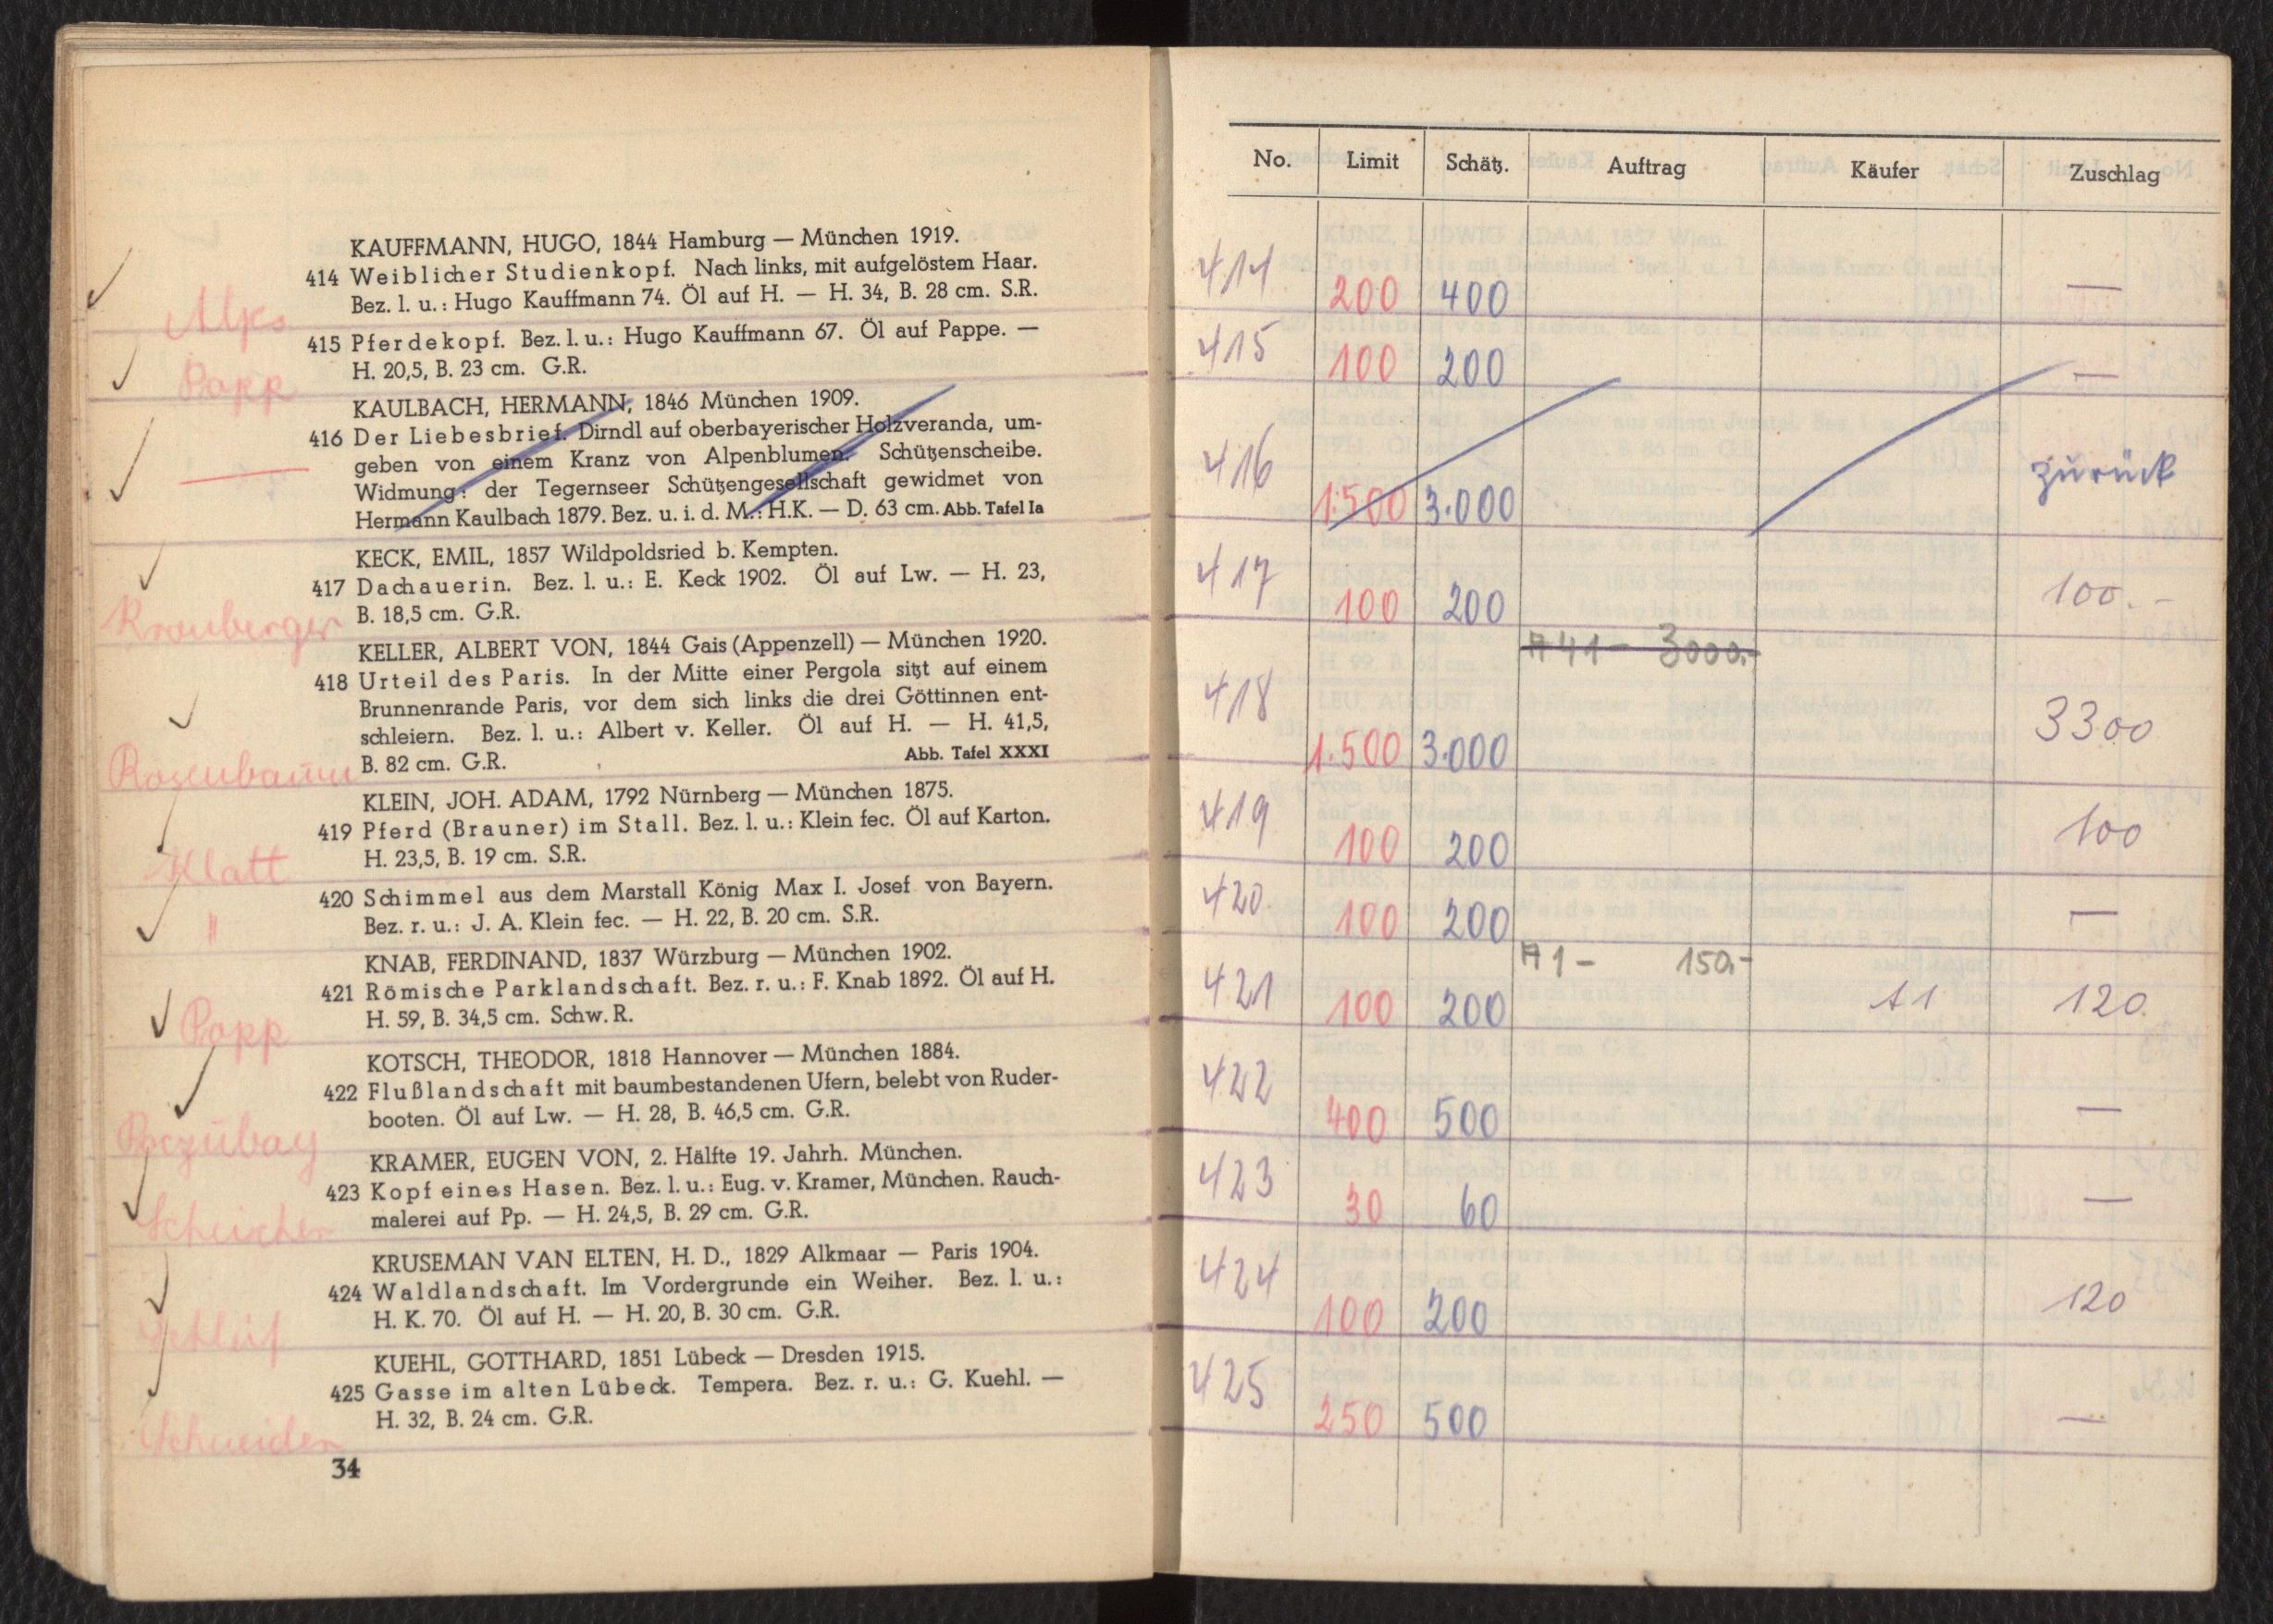 KAUFFMANN, HUGO, 1844 Hamburg — München 1919.
414 Weiblicher Studienkopf. Nach links, mit aufgelöstem Haar.
Bez. l. u.: Hugo Kauffmann 74. Öl auf H. — H. 34, B. 28 cm. S.R.
415 Pferdekopf. Bez. l. u.: Hugo Kauffmann 67. Öl auf Pappe. —
Popp
H. 20,5, B. 23 cm. G.R.
KAULBACH, HERMANN, 1846 München 1909.
416 Der Liebesbrief. Dirndl auf oberbayerischer Holzveranda, um-
geben von einem Kranz von Alpenblumen. Schützenscheibe.
Widmung: der Tegernseer Schützengesellschaft gewidmet von
Hermann Kaulbach 1879. Bez. u. i. d. M.: H.K. — D. 63 cm. Abb. Tafel Ia
KECK, EMIL, 1857 Wildpoldsried b. Kempten.
417 Dachauerin. Bez. l. u.: E. Keck 1902. Öl auf Lw. — H. 23,
Kronberger
B. 18,5 cm. G.R.
KELLER, ALBERT VON, 1844 Gais (Appenzell) — München 1920.
418 Urteil des Paris. In der Mitte einer Pergola sitzt auf einem
Brunnenrande Paris, vor dem sich links die drei Göttinnen ent-
schleiern. Bez. l. u.: Albert v. Keller. Öl auf H. — H. 41,5,
Rosenbaum
B. 82 cm. G.R. Abb. Tafel XXXI
KLEIN, JOH. ADAM, 1792 Nürnberg — München 1875.
419 Pferd (Brauner) im Stall. Bez. l. u.: Klein fec. Öl auf Karton.
Klatt
H. 23,5, B. 19 cm. S.R.
420 Schimmel aus dem Marstall König Max I. Josef von Bayern.
"
Bez. r. u.: J. A. Klein fec. — H. 22, B. 20 cm. S.R.
KNAB, FERDINAND, 1837 Würzburg — München 1902.
421 Römische Parklandschaft. Bez. r. u.: F. Knab 1892. Öl auf H.
Popp
H. 59, B. 34,5 cm. Schw. R.
KOTSCH, THEODOR, 1818 Hannover — München 1884.
422 Flußlandschaft mit baumbestandenen Ufern, belebt von Ruder-
booten. Öl auf Lw. — H. 28, B. 46,5 cm. G.R.
KRAMER, EUGEN VON, 2. Hälfte 19. Jahrh. München.
423 Kopf eines Hasen. Bez. l. u.: Eug. v. Kramer, München. Rauch-
malerei auf Pp. — H. 24,5, B. 29 cm. G.R.
KRUSEMAN VAN ELTEN, H. D., 1829 Alkmaar — Paris 1904.
424 Waldlandschaft. Im Vordergrunde ein Weiher. Bez. l. u.:
H. K. 70. Öl auf H. — H. 20, B. 30 cm. G.R.
KUEHL, GOTTHARD, 1851 Lübeck — Dresden 1915.
425 Gasse im alten Lübeck. Tempera. Bez. r. u.: G. Kuehl. —
H. 32, B. 24 cm. G.R.
Schneider
34
No. Limit Schätz. Auftrag Käufer Zuschlag
414 200 400 —
415 100 200 —
416 1.500 3.000 zurück
417 100 200 100.-
A 41 - 3000.-
418 1.500 3.000 3300
419 100 200 100
420 100 200 —
A 1 - 150.-
421 100 200 A 1 120
422 400 500 —
423 30 60 —
424 100 200 120
425 250 500 —